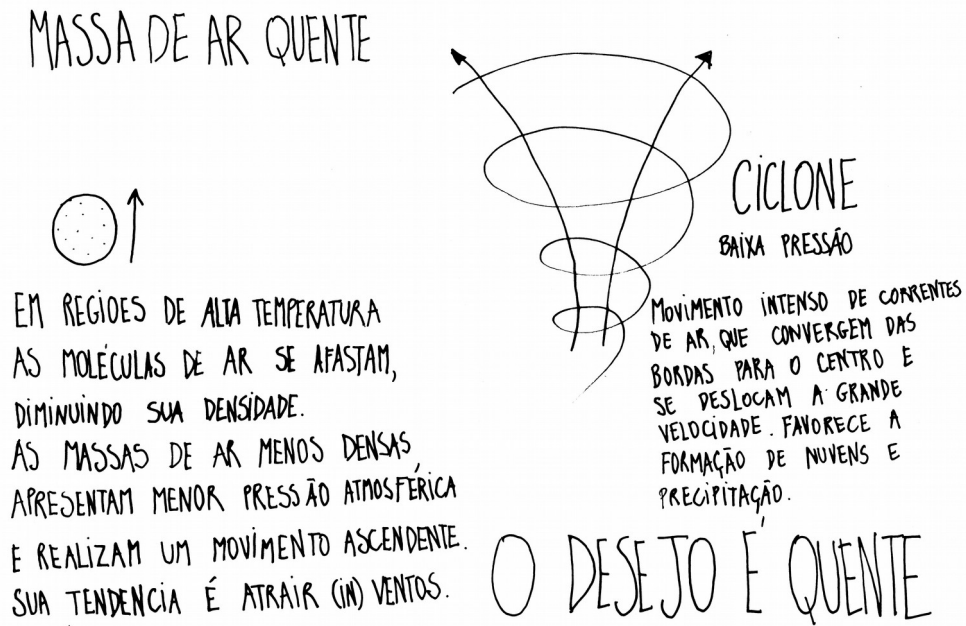 MASSA DE AR QUENTE
EM REGIOES DE ALTA TEMPERATURA
AS MOLÉCULAS DE AR SE AFASTAM,
DIMINUINDO SUA DENSIDADE.
AS MASSAS DE AR MENOS DENSAS,
APRESENTAM MENOR PRESSÃO ATMOSFÉRICA
E REALIZAM UM MOVIMENTO ASCENDENTE.
SUA TENDENCIA É ATRAIR (IN) VENTOS.
CICLONE
BAIXA PRESSÃO
MOVIMENTO INTENSO DE CORRENTES
DE AR, QUE CONVERGEM DAS
BORDAS PARA O CENTRO E
SE DESLOCAM A GRANDE
VELOCIDADE. FAVORECE A
FORMAÇÃO DE NUVENS E
PRECIPITAÇÃO.
O DESEJO É QUENTE